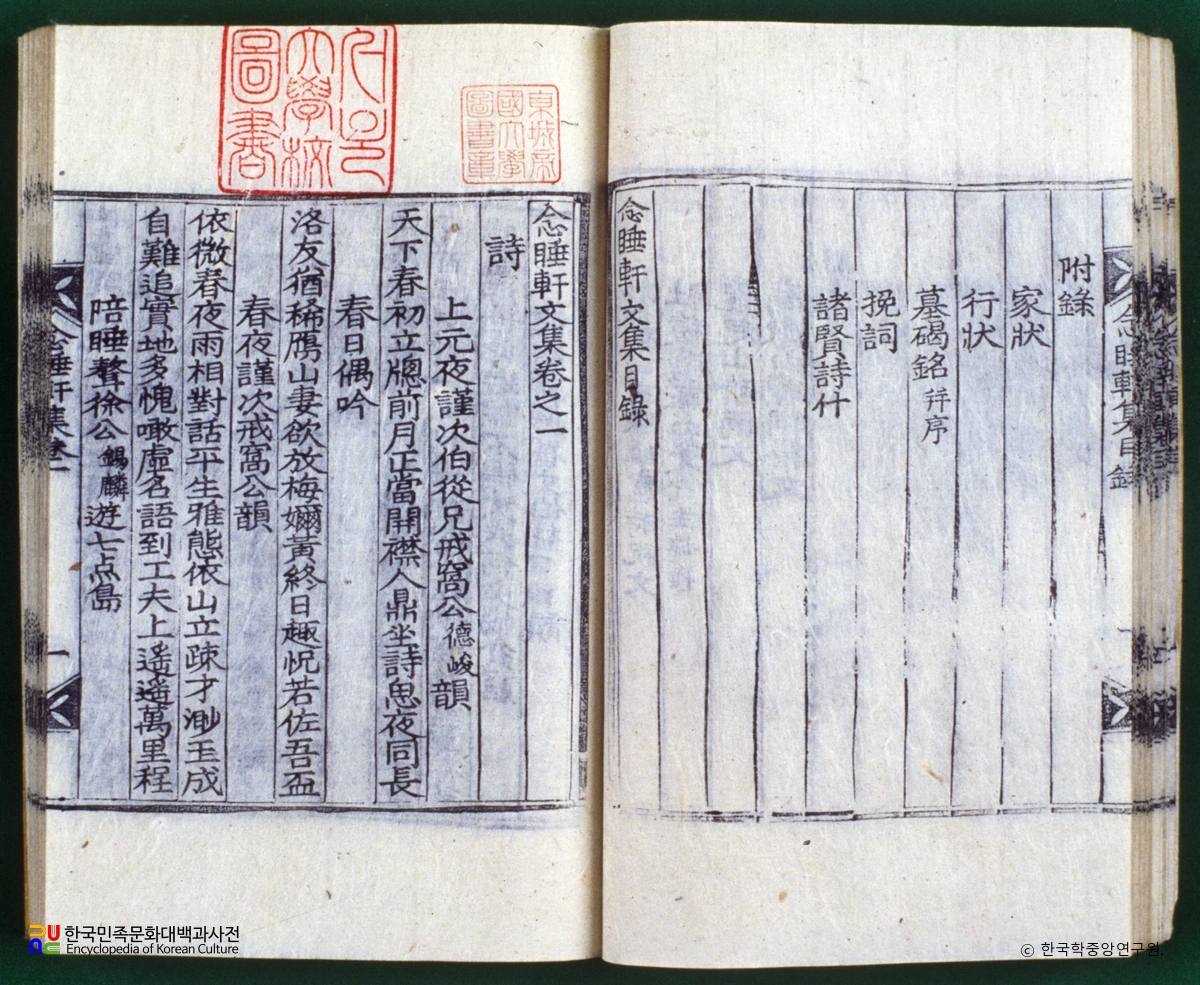 附錄
家狀
行狀
墓碣銘 并序
挽詞
諸賢詩什
念睡軒文集目錄
念睡軒集目錄
東城帝
國大學
圖書章
大學校
圖書
念睡軒文集卷之一
詩
上元夜謹次伯從兄戒窩公德峻韻
天下春初立牕前月正當開襟人鼎坐詩思夜同長
春日偶吟
洛友猶稀鴈山妻欲放梅嬭黃終日趣怳若佐吾盃
春夜謹次戒窩公韻
依微春夜雨相對話平生雅態依山立疎才渺玉成
自難追實地多愧噉虛名語到工夫上遙遙萬里程
陪睡聱徐公錫麟遊七点島
念睡軒集卷一
一
한국민족문화대백과사전
Encyclopedia of Korean Culture
ⓒ 한국학중앙연구원.